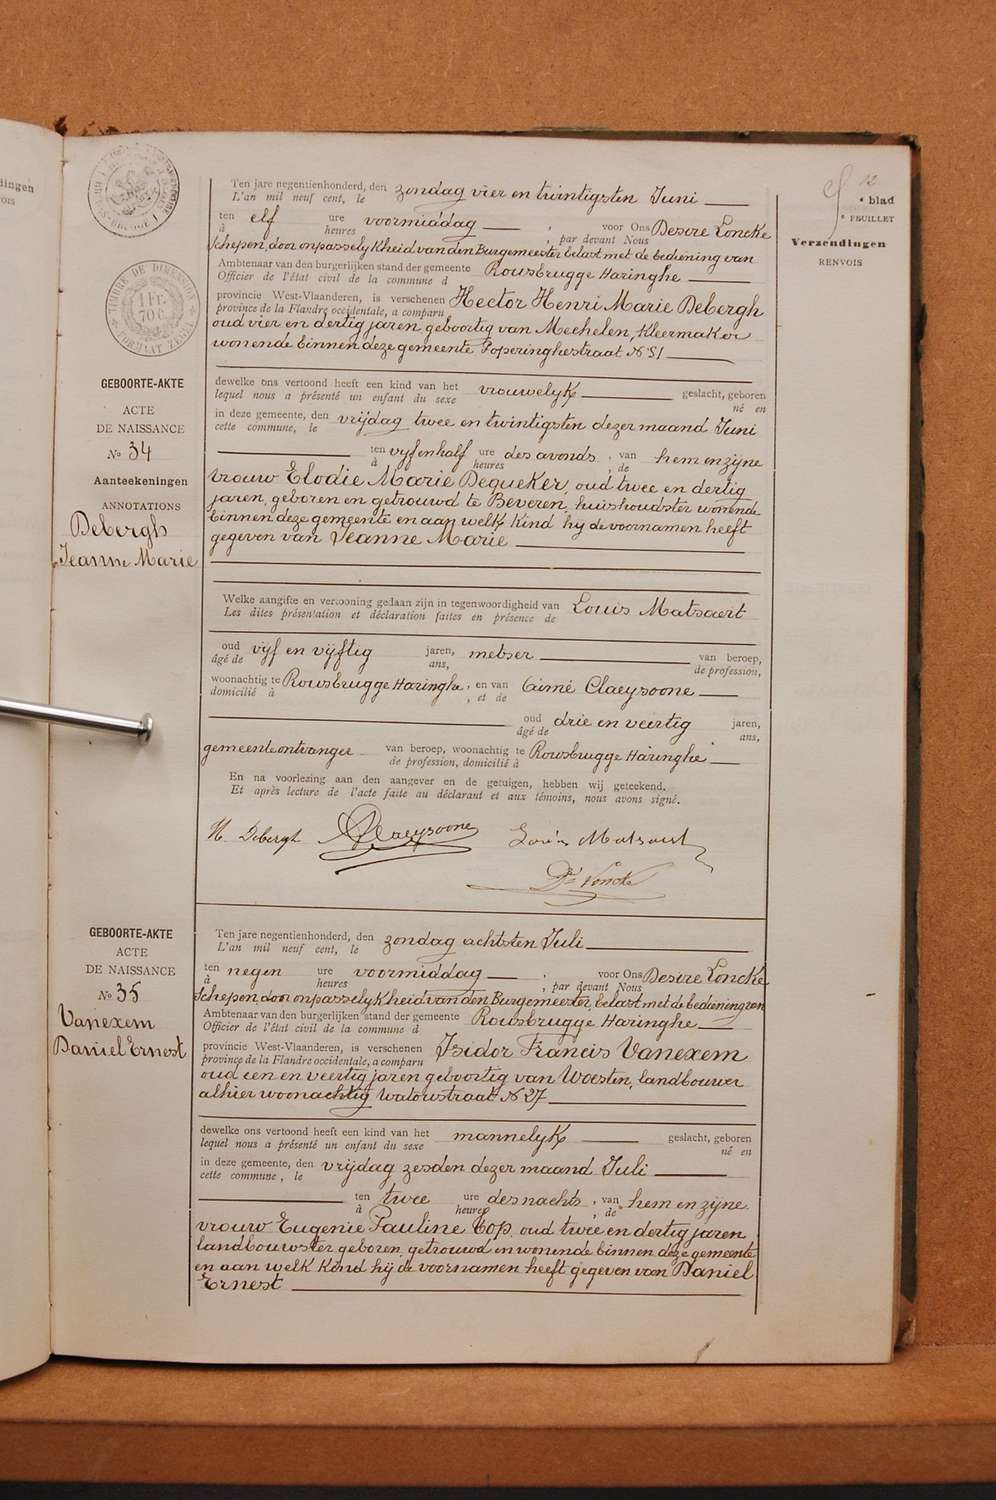 dingen
vois
12
e blad
e FEUILLET
Verzendingen
RENVOIS
TIMBRE DE DIMENSION
1 Fr.
70 c.
FORMAAT ZEGEL
GEBOORTE-AKTE
ACTE
DE NAISSANCE
No 34
Aanteekeningen
ANNOTATIONS
Debergh
Jeanne Marie
Ten jare negentienhonderd, den zondag vier en twintigsten Juni
L'an mil neuf cent, le
ten elf ure voormiddag , voor Ons Desire Loncke
à heures , par devant Nous
Schepen, door onpasselykheid van den Burgemeester belast met de bediening van
Ambtenaar van den burgerlijken stand der gemeente Rousbrugge Haringhe
Officier de l'état civil de la commune d
provincie West-Vlaanderen, is verschenen Hector Henri Marie Debergh
province de la Flandre occidentale, a comparu
oud vier en dertig jaren geboortig van Mechelen, kleermaker
wonende binnen deze gemeente Poperinghestraat No 51
dewelke ons vertoond heeft een kind van het vrouwelyk geslacht, geboren
lequel nous a présenté un enfant du sexe né en
in deze gemeente, den vrijdag twee en twintigsten dezer maand Juni
cette commune, le
ten vyf en half ure des avonds , van hem en zijne
à heures , de
vrouw Elodie Marie Dequeker, oud twee en dertig
jaren, geboren en getrouwd te Beveren, huishoudster wonende
binnen deze gemeente en aan welk kind hy de voornamen heeft
gegeven van Jeanne Marie
Welke aangifte en vertooning gedaan zijn in tegenwoordigheid van Louis Matsaert
Les dites présentation et déclaration faites en présence de
oud vyf en vyftig jaren, metser van beroep,
âgé de ans, de profession,
woonachtig te Rousbrugge Haringhe , en van Aimé Claeysoone
domicilié à , et de
oud drie en veertig jaren,
âgé de ans,
gemeenteontvanger van beroep, woonachtig te Rousbrugge Haringhe
de profession, domicilié à
En na voorlezing aan den aangever en de getuigen, hebben wij geteekend.
Et après lecture de l'acte faite au déclarant et aux témoins, nous avons signé.
H. Debergh A Claeysoone Louis Matsaert
Dé Loncke
GEBOORTE-AKTE
ACTE
DE NAISSANCE
No 35
Vanexem
Daniel Ernest
Ten jare negentienhonderd, den zondag achtsten Juli
L'an mil neuf cent, le
ten negen ure voormiddag , voor Ons Desire Loncke
à heures , par devant Nous
Schepen, door onpasselykheid van den Burgemeester, belast met de bediening van
Ambtenaar van den burgerlijken stand der gemeente Rousbrugge Haringhe
Officier de l'état civil de la commune d
provincie West-Vlaanderen, is verschenen Isidor Francis Vanexem
province de la Flandre occidentale, a comparu
oud een en veertig jaren geboortig van Woesten, landbouwer
alhier woonachtig Watoustraat No 27
dewelke ons vertoond heeft een kind van het mannelyk geslacht, geboren
lequel nous a présenté un enfant du sexe né en
in deze gemeente, den vrijdag zesden dezer maand Juli
cette commune, le
ten twee ure des nachts , van hem en zijne
à heures , de
vrouw Eugenie Pauline Top, oud twee en dertig jaren,
landbouwster geboren, getrouwd en wonende binnen deze gemeente
en aan welk kind hij de voornamen heeft gegeven van Daniel
Ernest